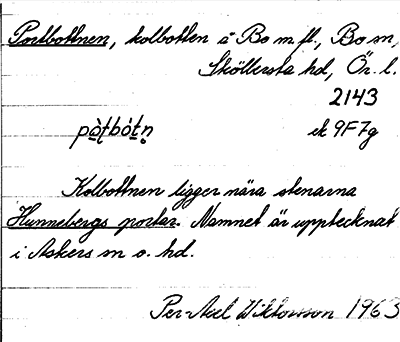 Portbottnen, kolbotten å Bo m fl., Bo sn,
Sköllersta hd, Ör. l.
2143
pòṭbótn̥ ek 9F7g
Kolbottnen ligger nära stenarna
Hunnebergs portar. Namnet är upptecknat
i Askers sn o. hd.
Per-Axel Wiktorsson 1963